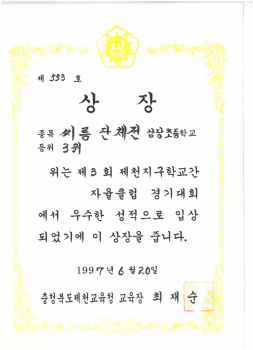 제 553 호
상 장
종목 씨름 단체전 삼장초등학교
등위 3위
위는 제3회 제천지구학교간
자율클럽 경기대회
에서 우수한 성적으로 입상
되었기에 이 상장을 줍니다.
1997년 6월 20일
충청북도제천교육청 교육장 최재순